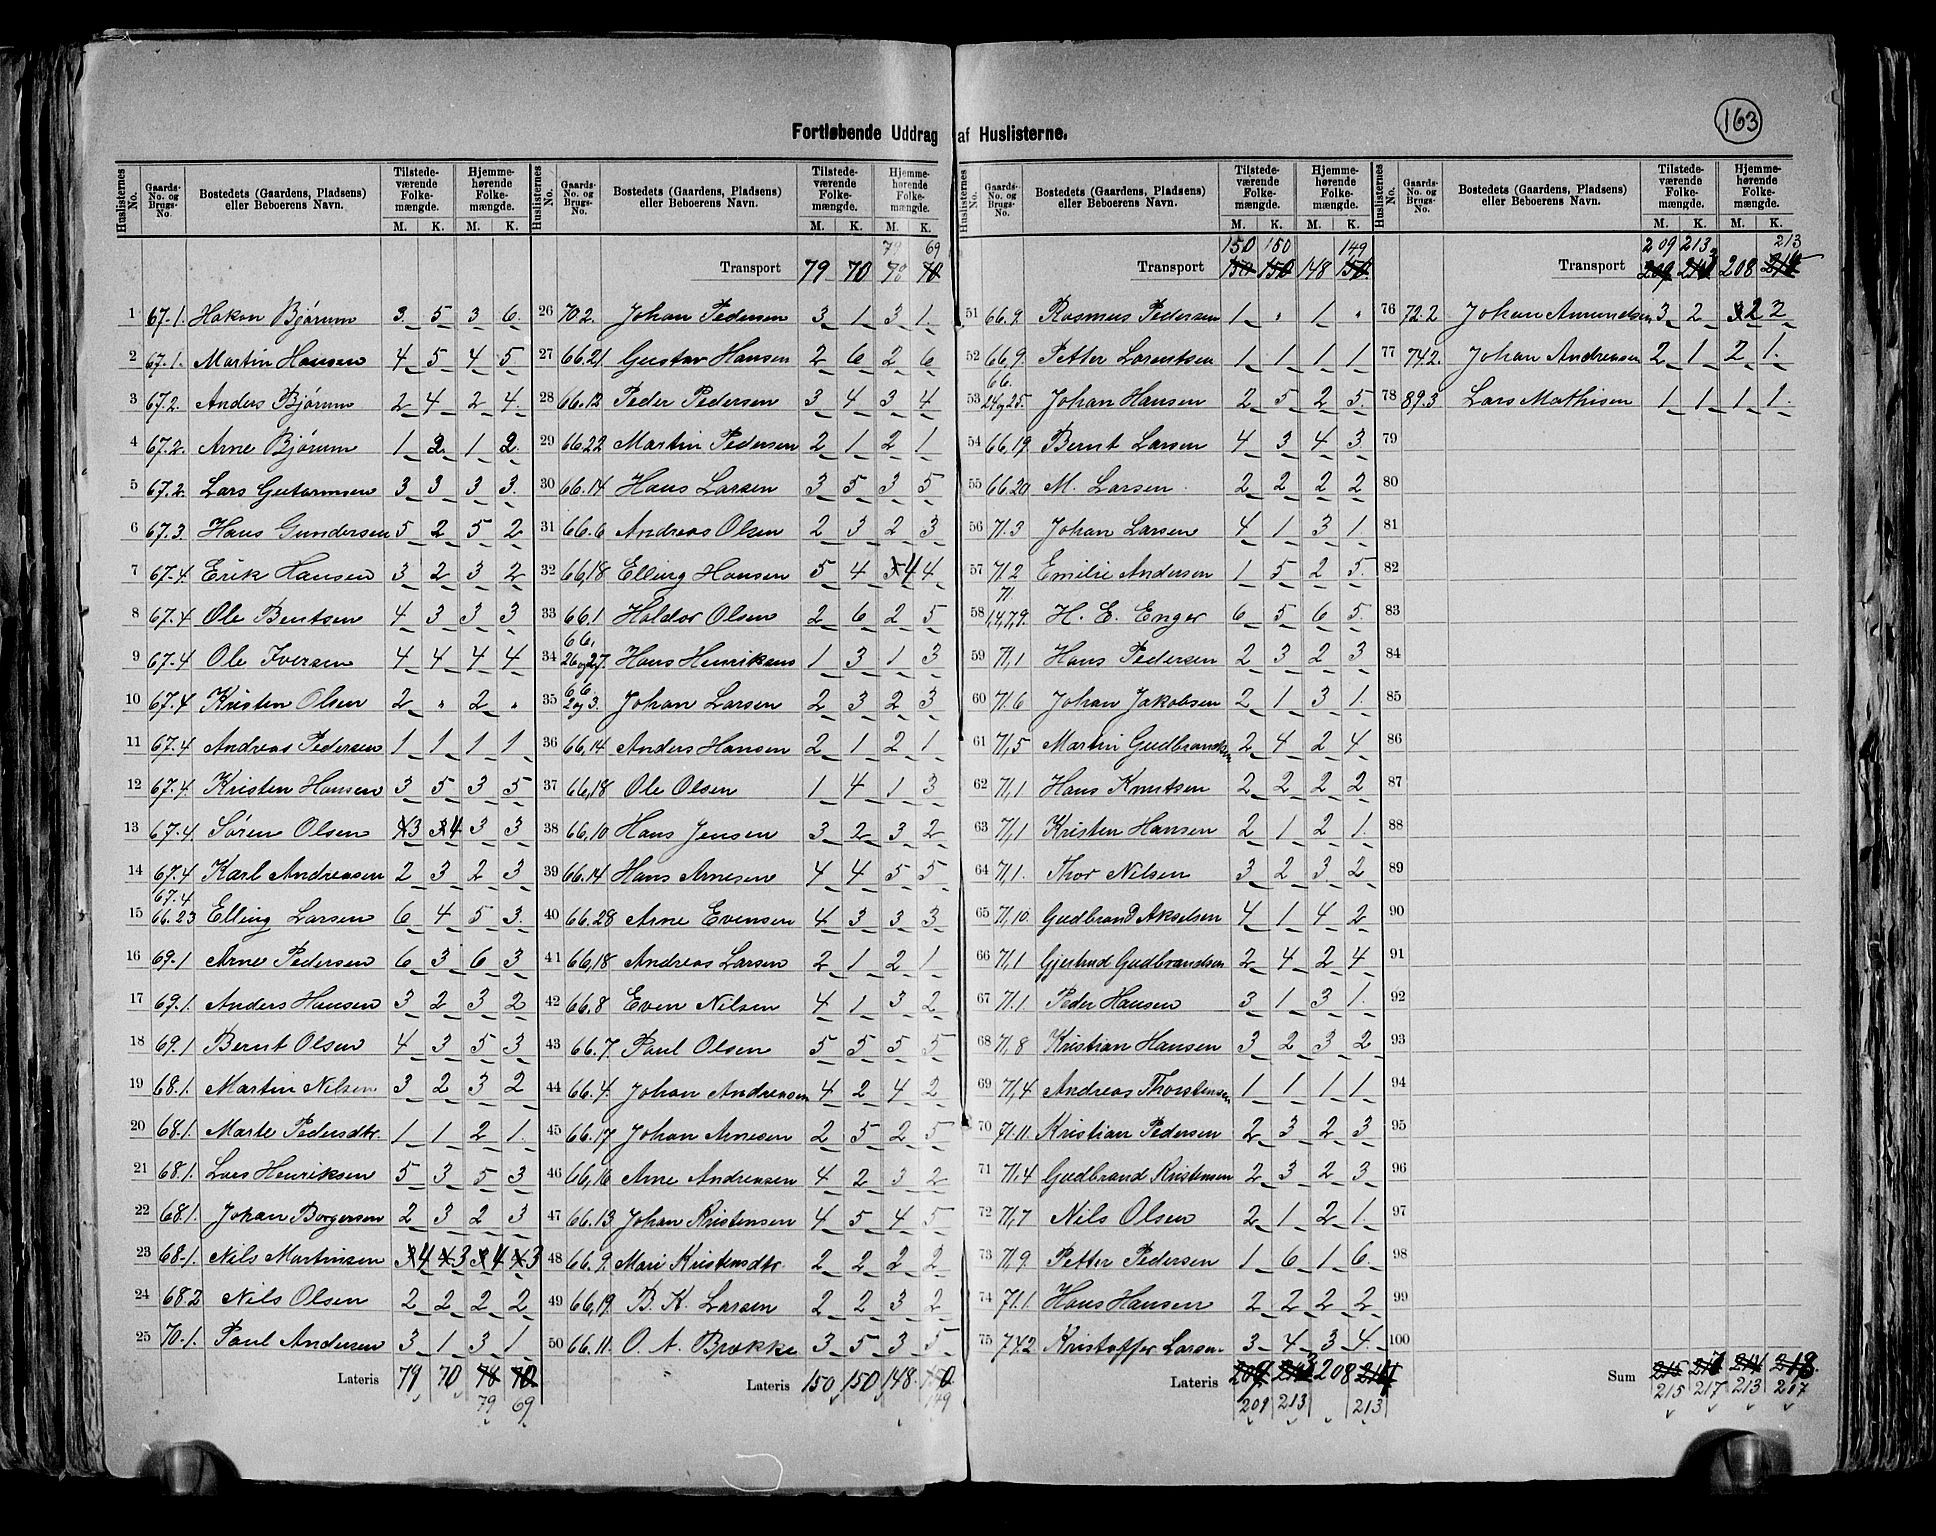 163
Fortløbende Uddrag af Huslisterne.
Huslisternes No. | Gaards- No. og Brugs- No. | Bostedets (Gaardens, Pladsens) eller Beboerens Navn. | Tilstede- værende Folke- mængde. M. K. | Hjemme- hørende Folke- mængde. M. K.
1 67.1. Hakon Bjørum 3 5 3 6
2 67.1. Martin Hansen 4 5 4 5
3 67.2. Anders Bjørum 2 4 2 4
4 67.2. Arne Bjørum 1 2 1 2
5 67.2. Lars Gutormsen 3 3 3 3
6 67.3. Hans Gundersen 5 2 5 2
7 67.4 Erik Hansen 3 2 3 2
8 67.4 Ole Bentsen 4 3 3 3
9 67.4 Ole Iversen 4 4 4 4
10 67.4 Kristen Olsen 2 " 2 "
11 67.4 Andreas Pedersen 1 1 1 1
12 67.4. Kristen Hansen 3 5 3 5
13 67.4 Søren Olsen 3 4 3 3
14 67.4 Karl Andreasen 2 3 2 3
15 67.4 66.23 Elling Larsen 6 4 5 3
16 69.1 Arne Pedersen 6 3 6 3
17 69.1. Anders Hansen 3 2 3 2
18 69.1 Bernt Olsen 4 3 5 3
19 68.1. Martin Nilsen 3 2 3 2
20 68.1. Marte Pedersdtr. 1 1 2 1
21 68.1. Lars Henriksen 5 3 5 3
22 68.1. Johan Borgersen 2 3 2 3
23 68.1. Nils Martinsen 4 3 4 3
24 68.2 Nils Olsen 2 2 2 2
25 70.1. Paul Andersen 3 1 3 1
Lateris 79 70 78 70
79 69
Huslisternes No. | Gaards- No. og Brugs- No. | Bostedets (Gaardens, Pladsens) eller Beboerens Navn. | Tilstede- værende Folke- mængde. M. K. | Hjemme- hørende Folke- mængde. M. K.
79 69
Transport 79 70 78 70
26 70.2. Johan Pedersen 3 1 3 1
27 66.21 Gustav Hansen 2 6 2 6
28 66.12 Peder Pedersen 3 4 3 4
29 66.22 Martin Pedersen 2 1 2 1
30 66.14 Hans Larsen 3 5 3 5
31 66.6 Andreas Olsen 2 3 2 3
32 66,18 Elling Hansen 5 4 5 4 4
33 66.1 Haldor Olsen 2 6 2 5
34 66, 26 og 27. Hans Henriksens 1 3 1 3
35 66. 2 og 3. Johan Larsen 2 3 2 3
36 66,14 Anders Hansen 2 1 2 1
37 66,18 Ole Olsen 1 4 1 3
38 66,10 Hans Jensen 3 2 3 2
39 66.14 Hans Arnesen 4 4 5 5
40 66.28 Arne Evensen 4 3 3 3
41 66,18 Andreas Larsen 2 1 2 1
42 66.8 Even Nilsen 4 1 3 2
43 66.7 Paul Olsen 5 5 5 5
44 66.4. Johan Andreasen 4 2 4 2
45 66.17 Johan Arnesen 2 5 2 5
46 66,16 Arne Andreasen 4 2 3 2
47 66.13 Johan Kristensen 4 5 4 5
48 66.9. Mari Kristensdtr. 2 2 2 2
49 66,19. B. K. Larsen 2 2 3 2
50 66.11. O. A. Brække 3 5 3 5
Lateris 150 150 148 150
149
Huslisternes No. | Gaards- No. og Brugs- No. | Bostedets (Gaardens, Pladsens) eller Beboerens Navn. | Tilstede- værende Folke- mængde. M. K. | Hjemme- hørende Folke- mængde. M. K.
150 150 149
Transport 150 150 148 150
51 66.9. Rasmus Pedersen 1 " 1 "
52 66,9. Petter Lorentsen 1 1 1 1
53 66. 24 og 25. Johan Hansen 2 5 2 5
54 66,19 Bernt Larsen 4 3 4 3
55 66.20 M. Larsen 2 2 2 2
56 71.3 Johan Larsen 4 1 3 1
57 71.2 Emilie Andersen 1 5 2 5
58 71 1,4,7,9. H. E. Enger 6 5 6 5
59 71,1 Hans Pedersen 2 3 2 3
60 71.6 Johan Jakobsen 2 1 3 1
61 71,5 Martin Gudbrandsen 2 4 2 4
62 71,1 Hans Knutsen 2 2 2 2
63 71,1 Kristen Hansen 2 1 2 1
64 71,1. Thor Nilsen 3 2 3 2
65 71,10. Gudbrand Akselsen 4 1 4 2
66 71,1 Gjerlud Gudbrandsen 2 4 2 4
67 71.1. Peder Hansen 3 1 3 1
68 71,8 Kristian Hansen 3 2 3 2
69 71,4 Andreas Thorstensen 1 1 1 1
70 71.11. Kristian Pedersen 2 3 2 3
71 71.4 Gudbrand Kristensen 2 3 2 3
72 71,7 Nils Olsen 2 1 2 1
73 71,9 Petter Pedersen 1 6 1 6
74 71.1 Hans Hansen 2 2 2 2
75 74.2 Kristoffer Larsen 3 4 3 4
Lateris 209 213 208 214
209 213 213
Huslisternes No. | Gaards- No. og Brugs- No. | Bostedets (Gaardens, Pladsens) eller Beboerens Navn. | Tilstede- værende Folke- mængde. M. K. | Hjemme- hørende Folke- mængde. M. K.
209 213 213
Transport 209 213 208 214
76 72.2 Johan Amundsen 3 2 3 2 2
77 74.2. Johan Andreasen 2 1 2 1
78 89.3 Lars Mathisen 1 1 1 1
79
80
81
82
83
84
85
86
87
88
89
90
91
92
93
94
95
96
97
98
99
100
Sum 215 217 214 218
215 217 213 217